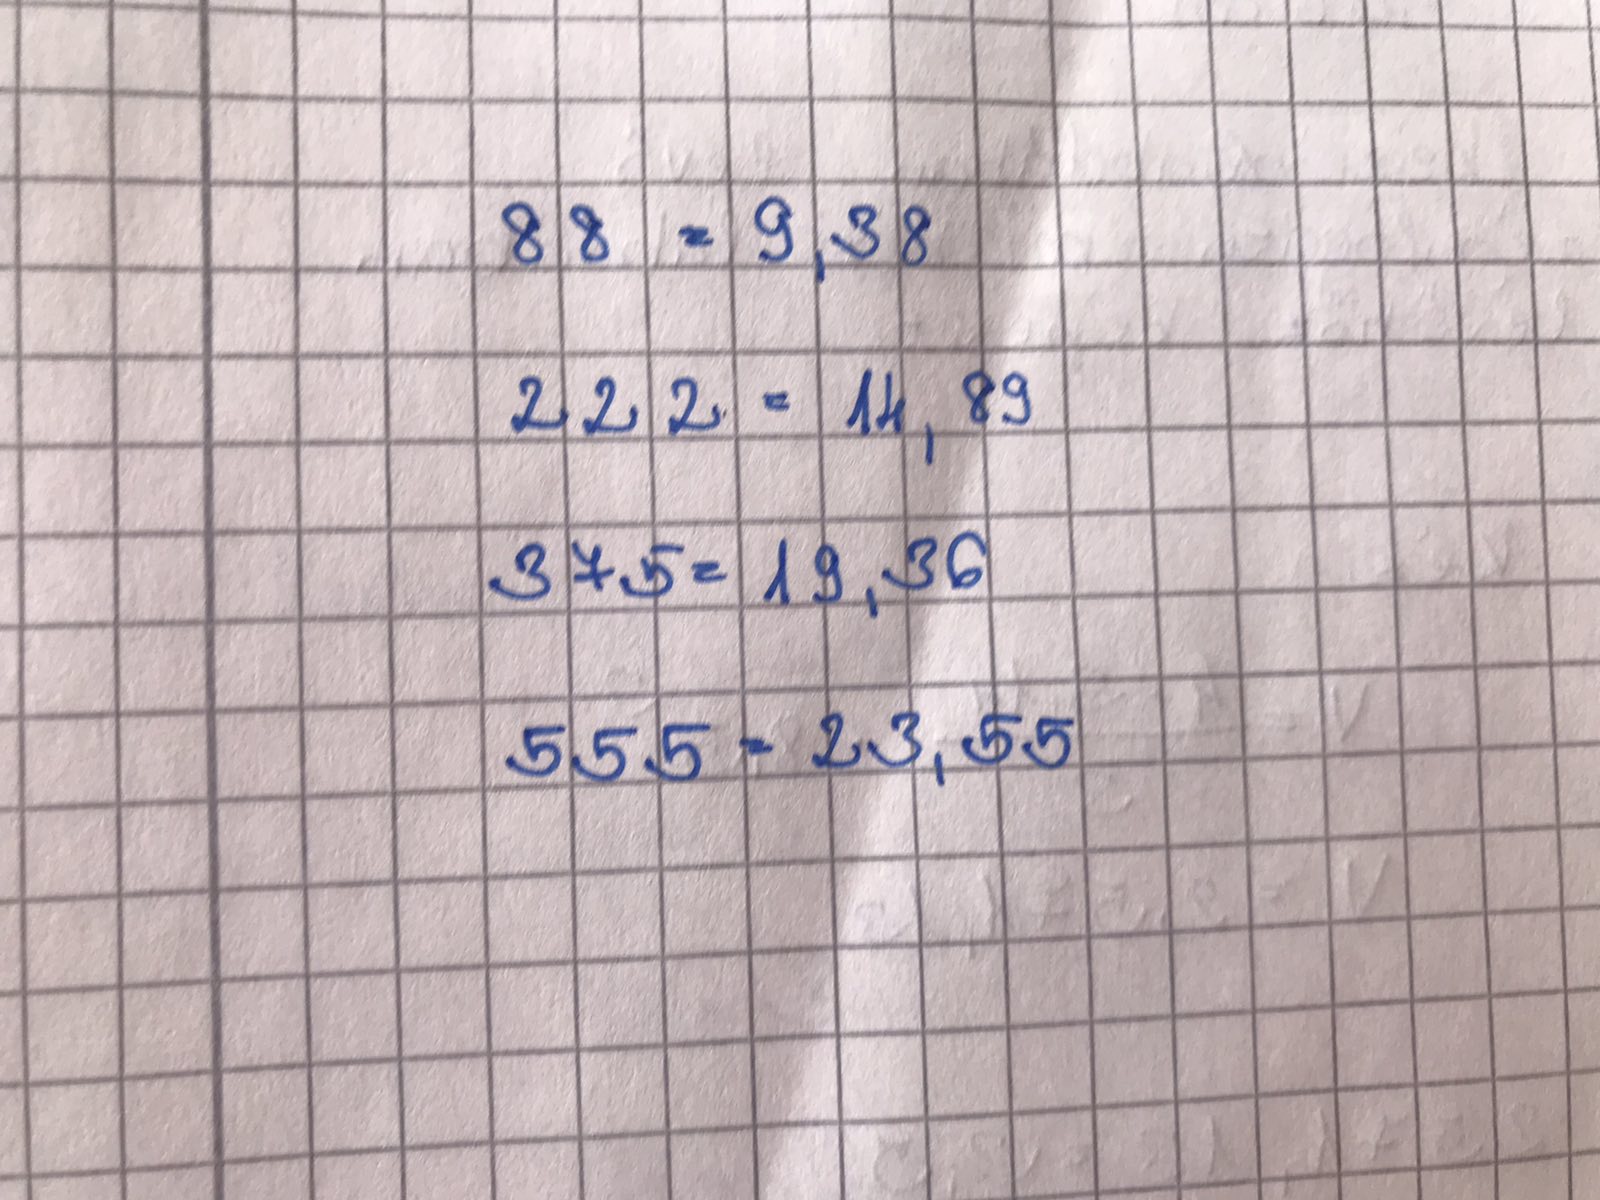 88 = 9,38
222 = 14,89
375 = 19,36
555 = 23,55